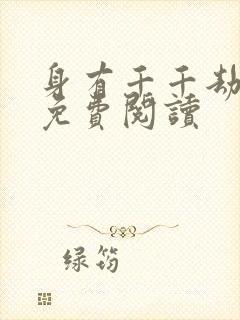 身有千千劫
免費閱讀
绿筠